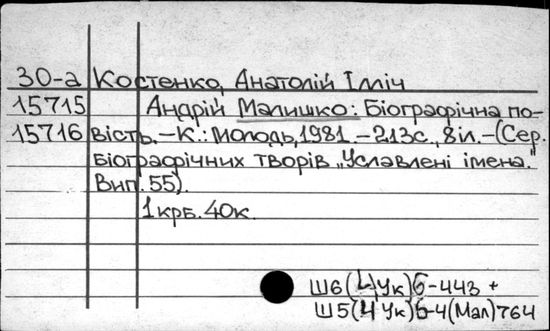 30-а Костенко, Анатолій Ілліч
15715 Андрій Малишко: Біографічна по-
15716 вість. – К.: Молодь, 1981. – 213с., 8іл. – (Сер.
біографічних творів „Уславлені імена."
Вип. 55).
1крб. 40к.
Ш6(4Ук)6-443 +
Ш5(4Ук)6-4(Мал)764